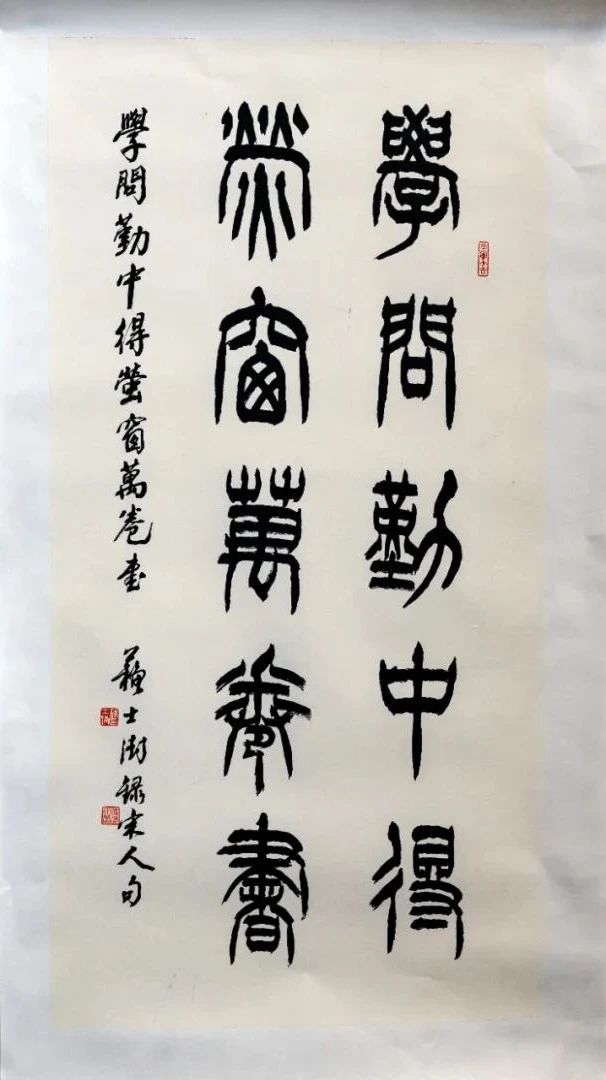 學問勤中得
螢窗萬卷書
學問勤中得螢窗萬卷書 蘇士澍録宋人句